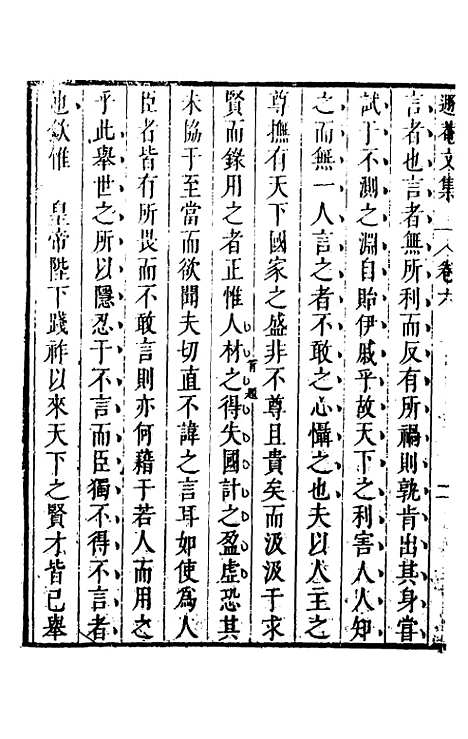 遜菴文集 卷六 二
言者也言者無所利而反有所禍則孰肯出其身嘗
試于不測之淵自貽伊戚乎故天下之利害人人知
之而無一人言之者不敢之心懾之也夫以人主之
尊撫有天下國家之盛非不尊且貴矣而汲汲于求
賢而錄用之者正惟人材之得失國計之盈虛恐其
有題
未協于至當而欲聞夫切直不諱之言耳如使為人
臣者皆有所畏而不敢言則亦何藉于若人而用之
乎此舉世之所以隱忍于不言而臣獨不得不言者
也欽惟 皇帝陛下踐祚以來天下之賢才皆已舉